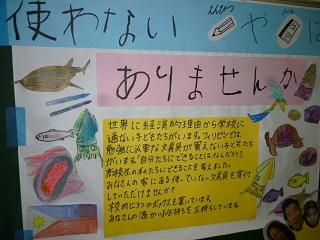 使わない や は
えんぴつ
ありませんか
世界に経済的理由から学校に
通えない子どもたちがいます。フィリピンでは、
勉強に必要な文房具が買えない子どもたち
がいます。自分たちにできることはなんだろう？
高校生の私たちにできることを考えました。
みなさんの家にある使っていない文房具を寄付
していただけませんか？
校内に3つのボックスを置いています。
みなさんの温かいお気持ちをお待ちしています。